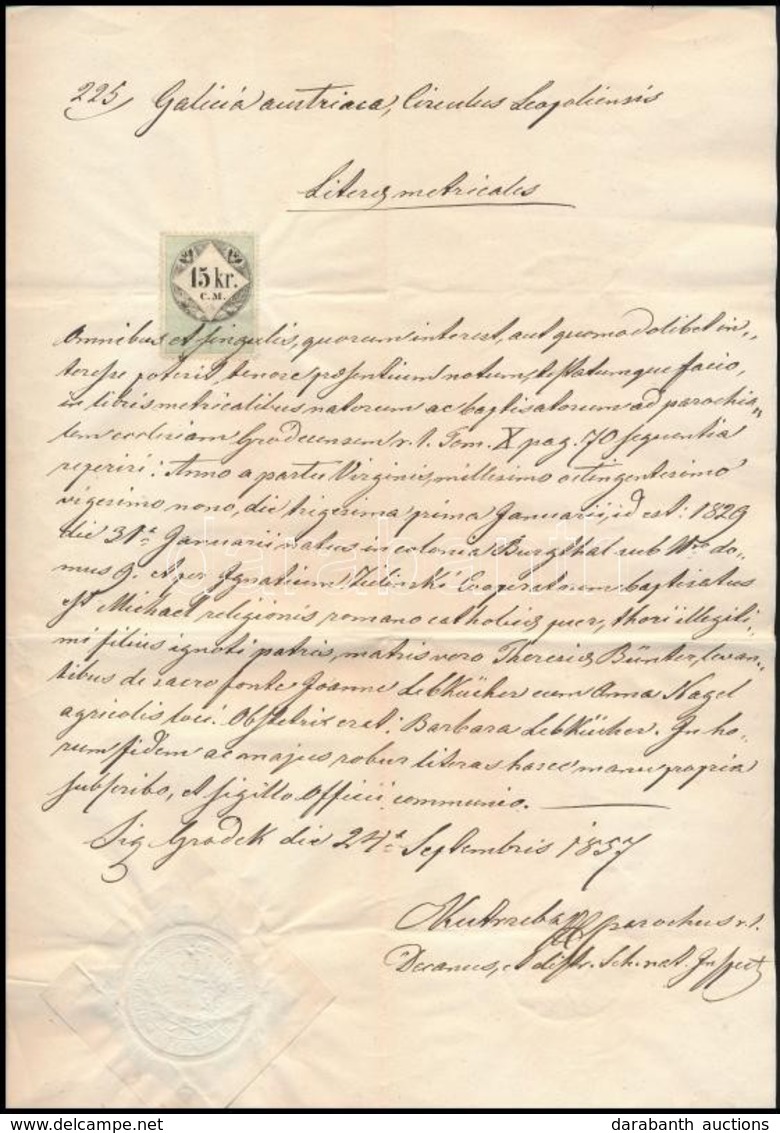 225/ Galicia austriaca, Circulus Leopoliensis
Literæ metricales
15 kr.
C.M.
Omnibus et singulis, quorum interest, aut quomodolibet in„
teresse poterit, tenore præsentium notum, testatumque facio,
in libris metricalibus natorum ac baptisatorum ad parochia„
lem ecclesiam Grodecensem r. l. Tom. X pag. 70 sequentia
reperiri: Anno a partu Virginis, millesimo octingentesimo
vigesimo nono, die trigesima prima Januarii, id est: 1829
die 31ª Januarii natus in colonia Burgthal sub Nro do-
mus 9. et per Ignatium Zielinski Cooperatorem baptisatus
est Michael religionis romano catholicæ puer, thori illegiti„
mi filius ignoti patris, matris vero Theresiæ Bünter, levan„
tibus de sacro fonte Joanne Lebkücher cum Anna Nagel
agricolis loci. Obstetrix erat: Barbara Lebkücher. In ho„
rum fidem ac majus robur literas hasce manu propria
subscribo, et sigillo Officii communio.
Sig Grodek die 24ª Septembris 1857
parochus r. l.
Decanus, et distr. Schol. Inspect
darabanth
darabanth auctions